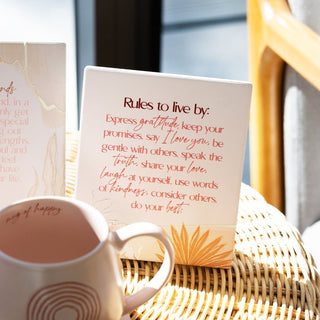 Rules to live by:
Express gratitude, keep your
promises, say I love you, be
gentle with others, speak the
truth, share your love,
laugh at yourself, use words
of kindness, consider others,
do your best.
nds
nd, in a
nly get
special
g out
engths,
ul and
feel
have
r life.
mug of happy